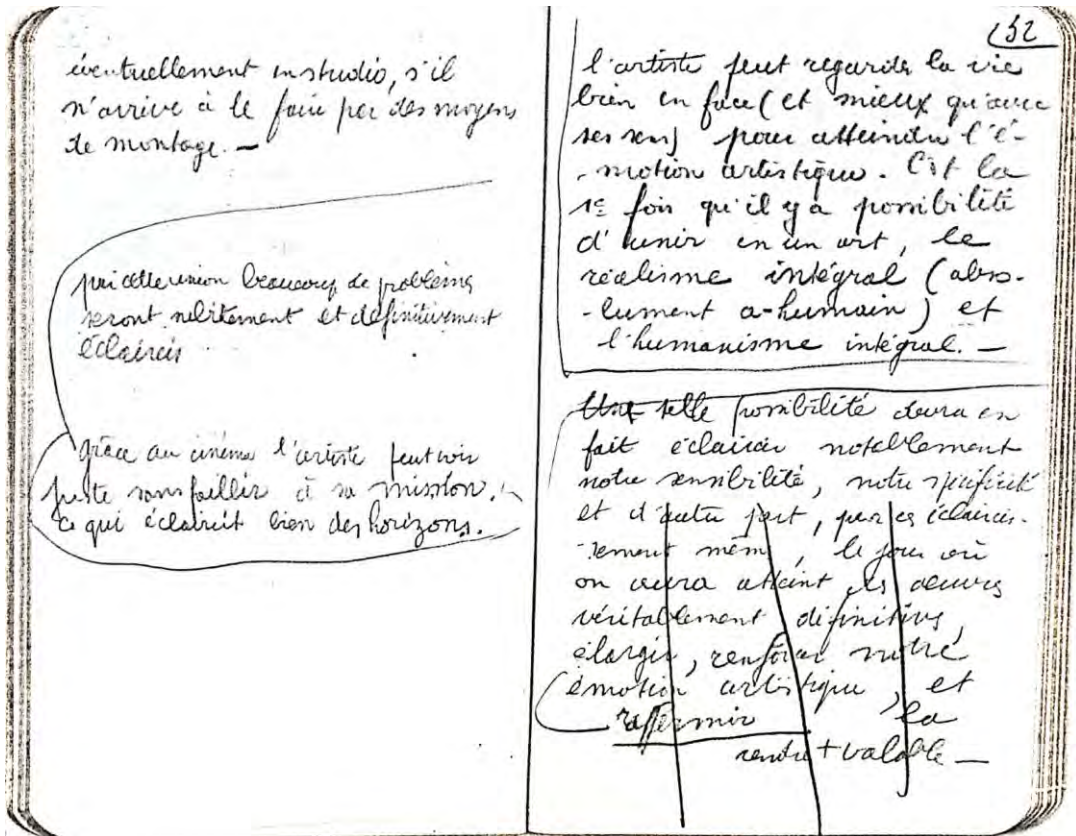 éventuellement en studio, s'il
n'arrive à le faire par des moyens
de montage. —
par cette union beaucoup de problèmes
seront subitement et définitivement
éclaircis
grâce au cinéma l'artiste peut voir
juste sans faillir à sa mission.
ce qui éclaircit bien des horizons.
52
l'artiste peut regarder la vie
bien en face (et mieux qu'avec
ses sens) pour atteindre l'é-
-motion artistique. C'est la
1e fois qu'il y a possibilité
d'unir en un art, le
réalisme intégral (abso-
-lument a-humain) et
l'humanisme intégral. —
Une telle possibilité devra en
fait éclaircir notablement
notre sensibilité, notre spécificité
et d'autre part, par ces éclaircis-
-sement même, le jour où
on aura atteint des œuvres
véritablement définitives,
élargir, renforcer notre
émotion artistique, et
raffermir la
rendre + valable —